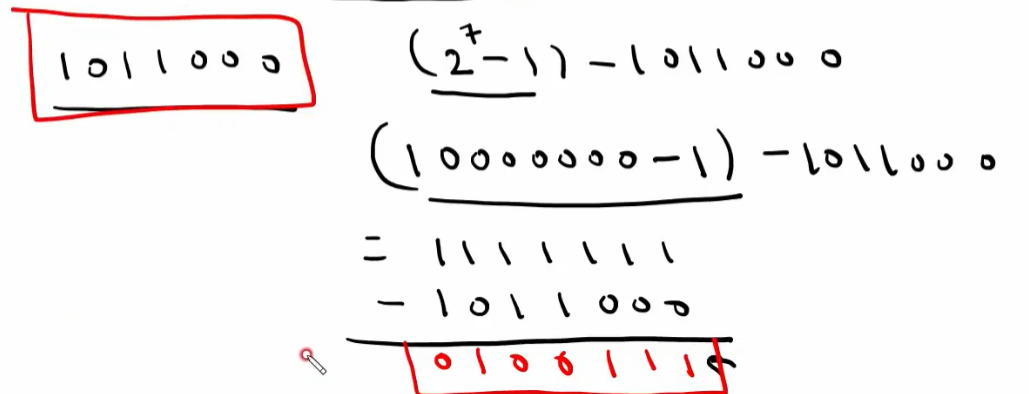 1011000
(2⁷-1) - 1011000
(10000000-1) - 1011000
= 1111111
- 1011000
0100111